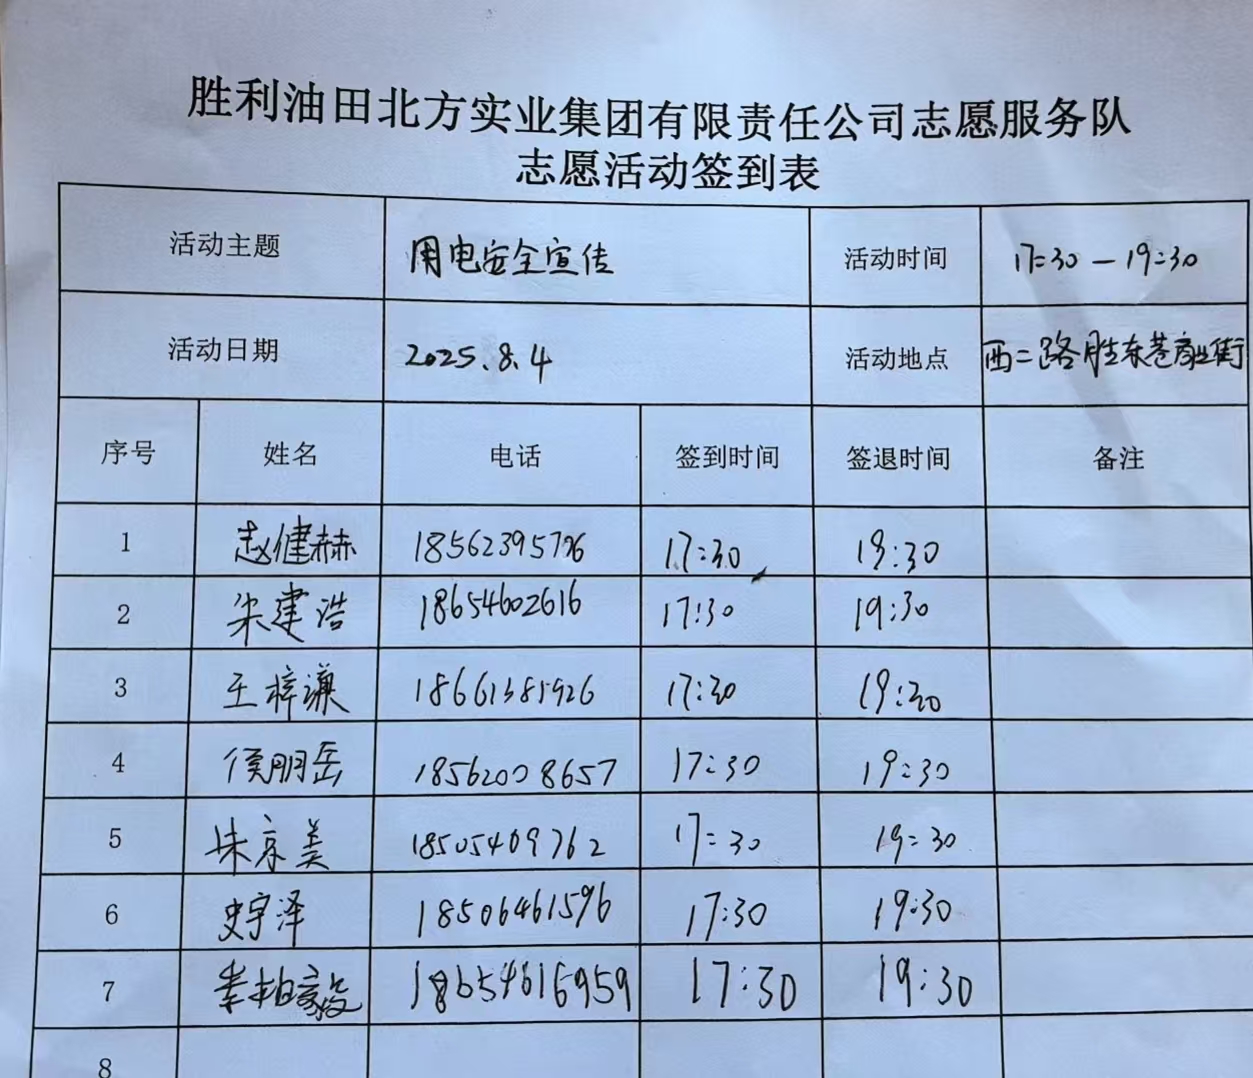 胜利油田北方实业集团有限责任公司志愿服务队
志愿活动签到表
活动主题 用电安全宣传 活动时间 17:30—19:30
活动日期 2025.8.4 活动地点 西二路胜东巷商业街
序号 姓名 电话 签到时间 签退时间 备注
1 赵健赫 17:30 19:30
2 朱建浩 18654602616 17:30 19:30
3 王梓谦 17:30 19:30
4 侯朋岳 18562008657 17:30 19:30
5 京美 18505409762 17:30 19:30
6 史宇泽 18506461596 17:30 19:30
7 18654616959 17:30 19:30
8